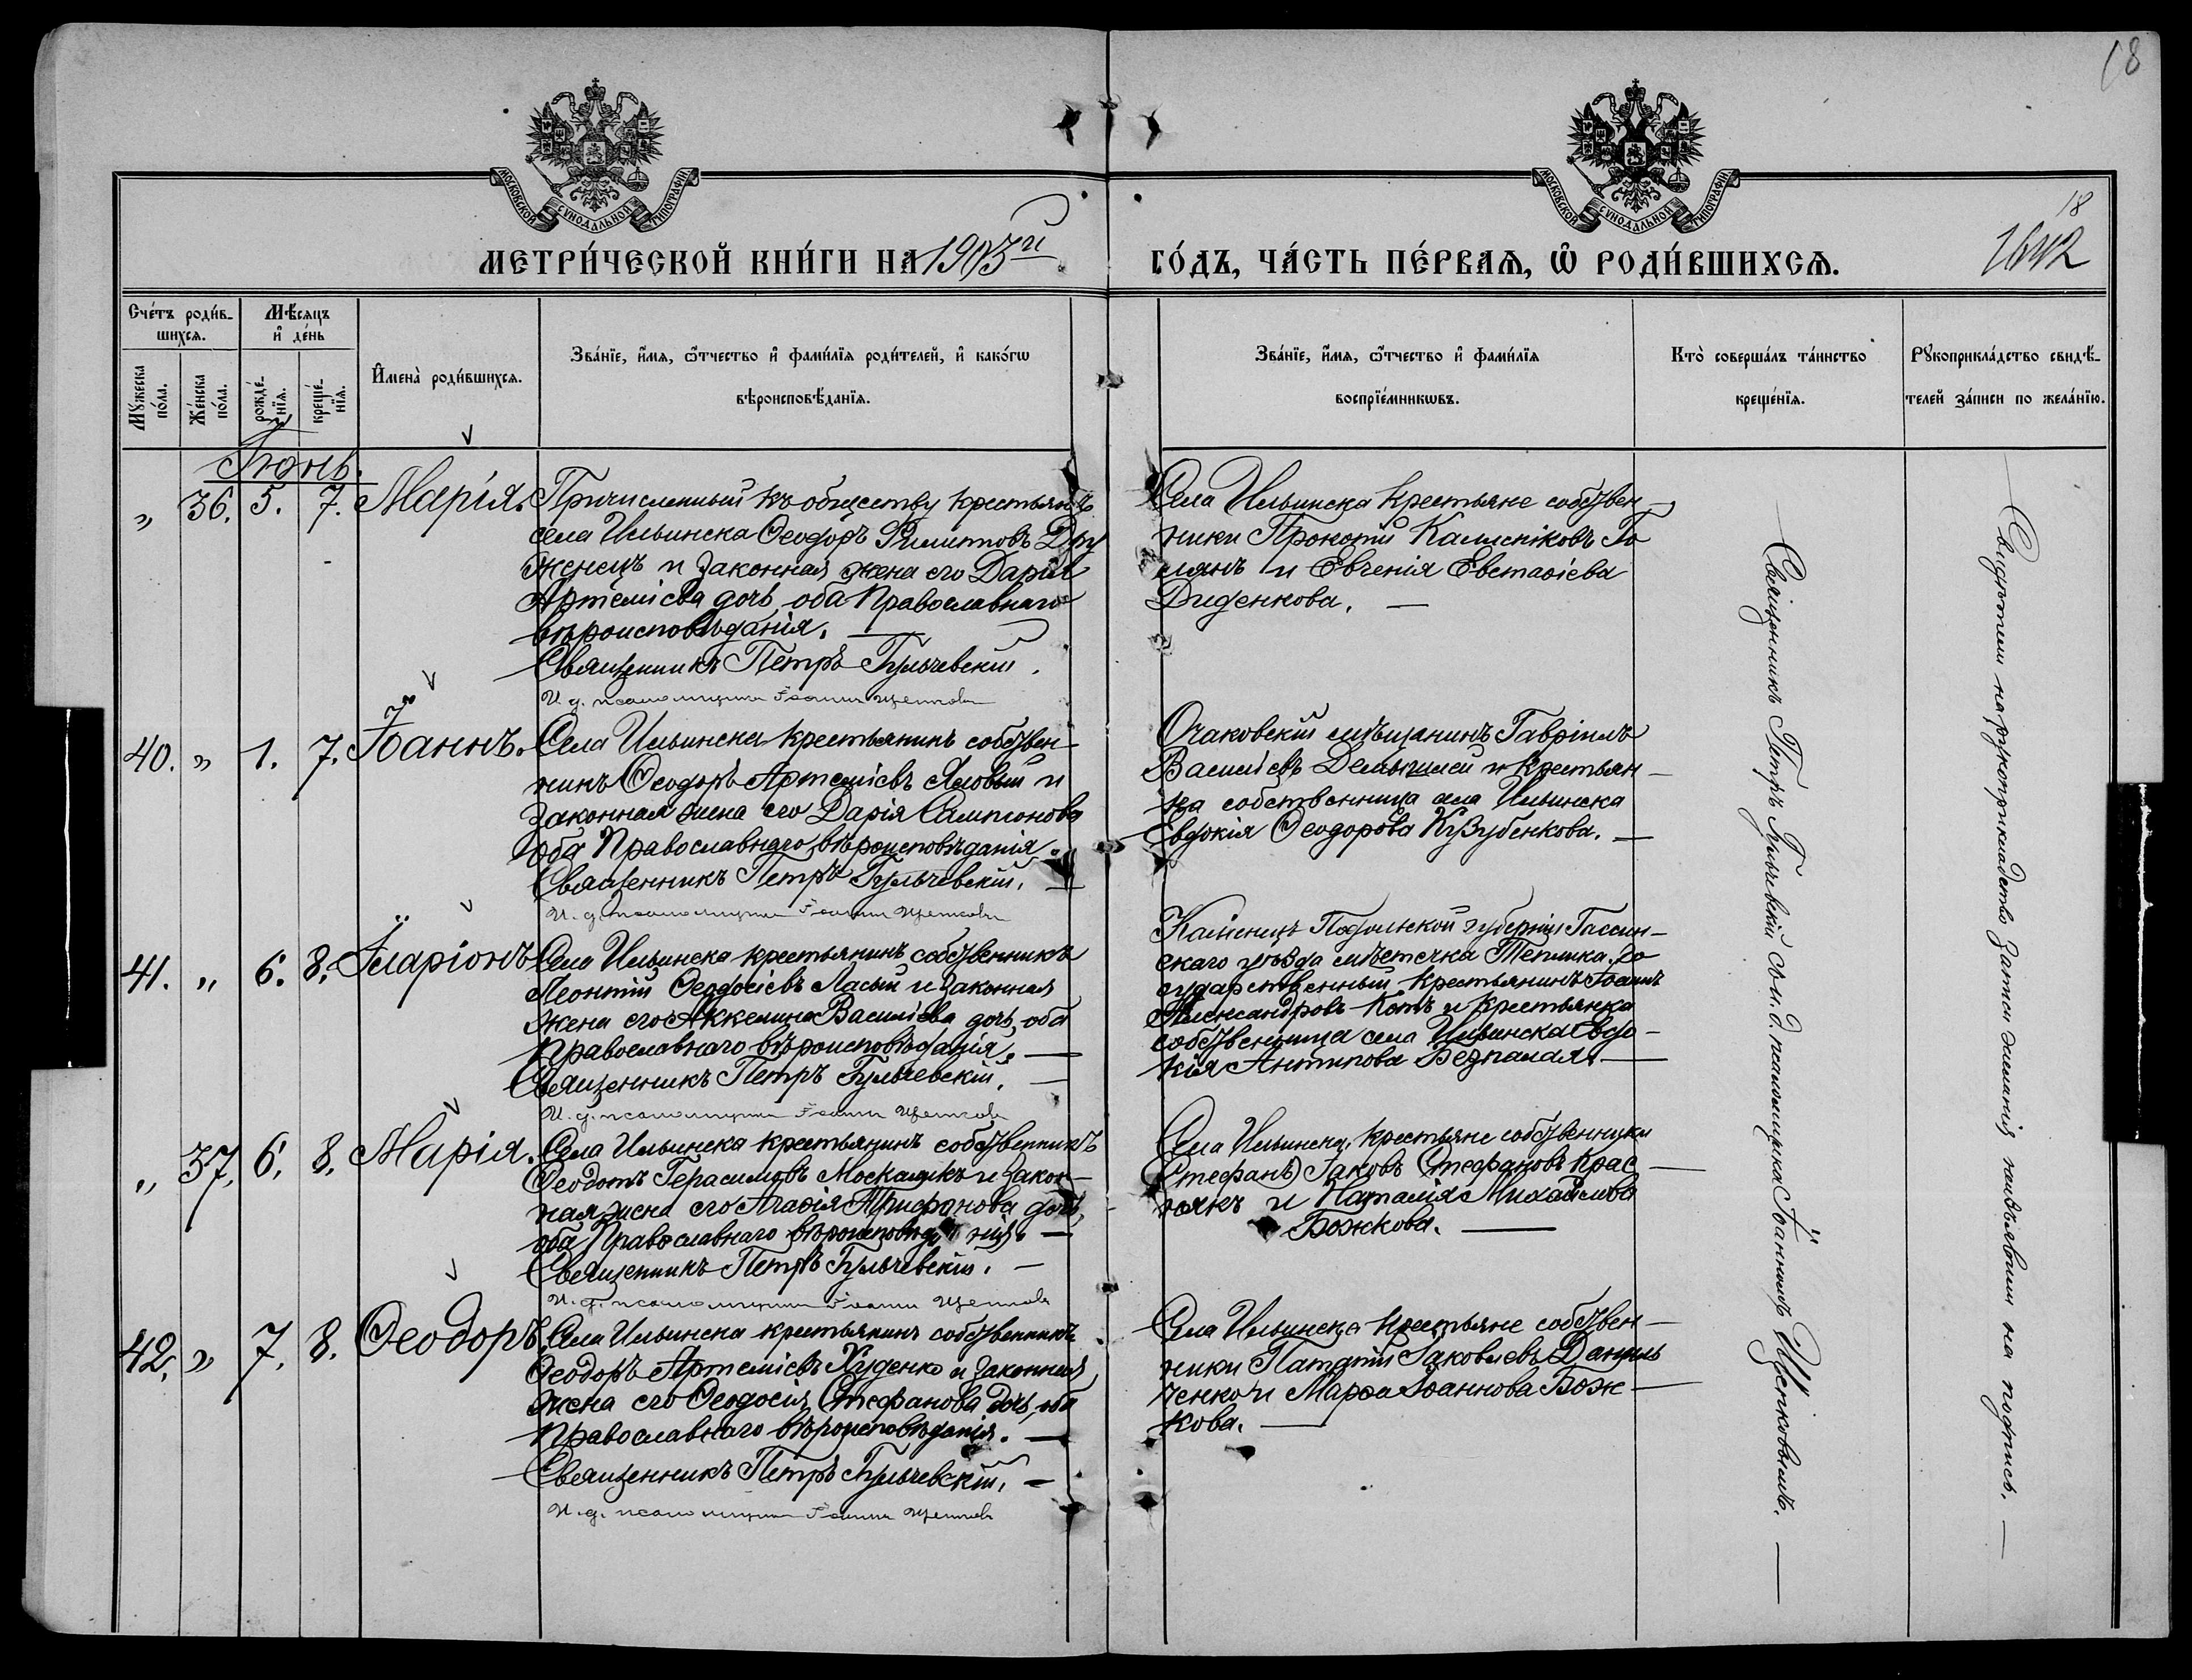 18
МОСКОВСКОЙ СѴНОДАЛЬНОЙ ТИПОГРАФІИ
МОСКОВСКОЙ СѴНОДАЛЬНОЙ ТИПОГРАФІИ
18
1642
МЕТРИ́ЧЕСКОЙ КНИ́ГИ НА 1903й ГО́ДЪ, ЧА́СТЬ ПЕ́РВАѦ, Ѡ РОДИ́ВШИХСѦ.
Счетъ роди́в-
шихсѧ.
Мꙋжеска по́ла.
Же́нска по́ла.
Мѣ́сѧцъ
и҆ де́нь
рожде́-
нїѧ.
креще́-
нїѧ.
И҆мена̀ роди́вшихсѧ.
Зва́нїе, и҆́мѧ, ѻ҆́тчество и҆ фами́лїѧ роди́телей, и҆ како́гѡ
вѣроисповѣ́данїѧ.
Зва́нїе, и҆́мѧ, ѻ҆́тчество и҆ фами́лїѧ
воспрїе́мникѡвъ.
Кто̀ соверша́лъ та́инство
креще́нїѧ.
Рꙋкоприкла́дство свидѣ́-
телей за́писи по жела́нїю.
Іюнь.
" 36. 5. 7. Марія.
Причисленный къ обществу крестьянъ
села Ильинска Ѳеодоръ Филиповъ Дру
женецъ и законная жена его Дарія
Артеміева дочь, оба Православнаго
вѣроисповѣданія. —
Священникъ Петръ Гульчевскій.
И. д. псаломщика Іоаннъ Щетковъ
Села Ильинска крестьяне собствен-
ники Прокопій
и Евгенія Евстаѳіева
Диденкова. —
40. " 1. 7. Іоаннъ.
Села Ильинска крестьянинъ собствен-
никъ Ѳеодоръ Артеміевъ Яловый и
законная жена его Дарія Сампсонова
оба Православнаго вѣроисповѣданія.
Священникъ Петръ Гульчевскій. —
И. д. псаломщика Іоаннъ Щетковъ
Очаковскій мѣщанинъ Гавріилъ
Василіевъ и крестьян-
ка собственница села Ильинска
Евдокія Ѳеодорова Кузубенкова. —
41. " 6. 8. Иларіонъ
Села Ильинска крестьянинъ собственникъ
Леонтій Ѳеодосіевъ Ласый и законная
жена его Аккелина Василіева дочь, оба
Православнаго вѣроисповѣданія. —
Священникъ Петръ Гульчевскій. —
И. д. псаломщика Іоаннъ Щетковъ
Каменецъ Подольской губерніи Гассин-
скаго уѣзда мѣстечка Теплика, го
сударственный крестьянинъ Іоаннъ
Александровъ Котъ и крестьянка
собственница села Ильинска Евдо-
кія Антипова Безпалая. —
" 37. 6. 8. Марія.
Села Ильинска крестьянинъ собственникъ
Ѳеодотъ Герасимовъ Москалюкъ и закон-
ная жена его Агаѳія Трифонова дочь,
оба Православнаго вѣроисповѣданія. —
Священникъ Петръ Гульчевскій. —
И. д. псаломщика Іоаннъ Щетковъ
Села Ильинска, крестьяне собственники
(Стефанъ) Іаковъ Стефановъ Крас-
някъ и Наталія Михайлова
Божкова. —
42. " 7. 8. Ѳеодоръ.
Села Ильинска крестьянинъ собственникъ
Ѳеодоръ Артеміевъ Худенко и законная
жена его Ѳеодосія Стефанова дочь, оба
Православнаго вѣроисповѣданія. —
Священникъ Петръ Гульчевскій. —
И. д. псаломщика Іоаннъ Щетковъ
Села Ильинска крестьяне собствен-
ники Іаковлевъ Даниль
ченко и Марѳа Іоаннова Бож-
кова. —
Священникъ Петръ Гульчевскій съ и. д. псаломщика Іоанномъ Щетковымъ. —
Свидѣтели на рукоприкладство записи желанія неизъявили на подпись. —